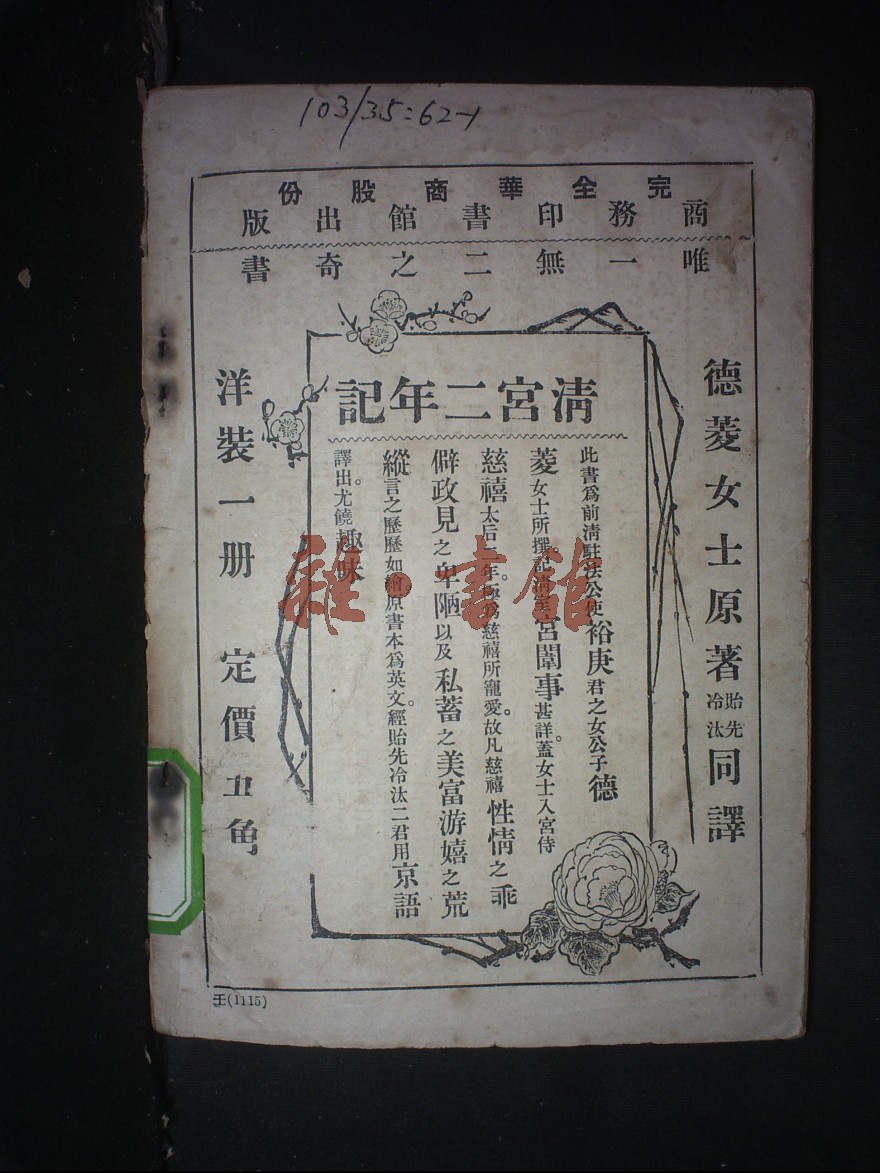 103/35:62-1
完全華商股份
商務印書館出版
唯一無二之奇書
德菱女士原著 貽先冷汰 同譯
清宮二年記
此書爲前清駐法公使裕庚君之女公子德
菱女士所撰記清室宮闈事甚詳。蓋女士入宮侍
慈禧太后二年。極爲慈禧所寵愛。故凡慈禧性情之乖
僻政見之卑陋以及私蓄之美富游嬉之荒
縱言之歷歷如繪原書本爲英文。經貽先冷汰二君用京語
譯出。尤饒趣味
洋裝一册 定價五角
雜·書館
壬(1115)